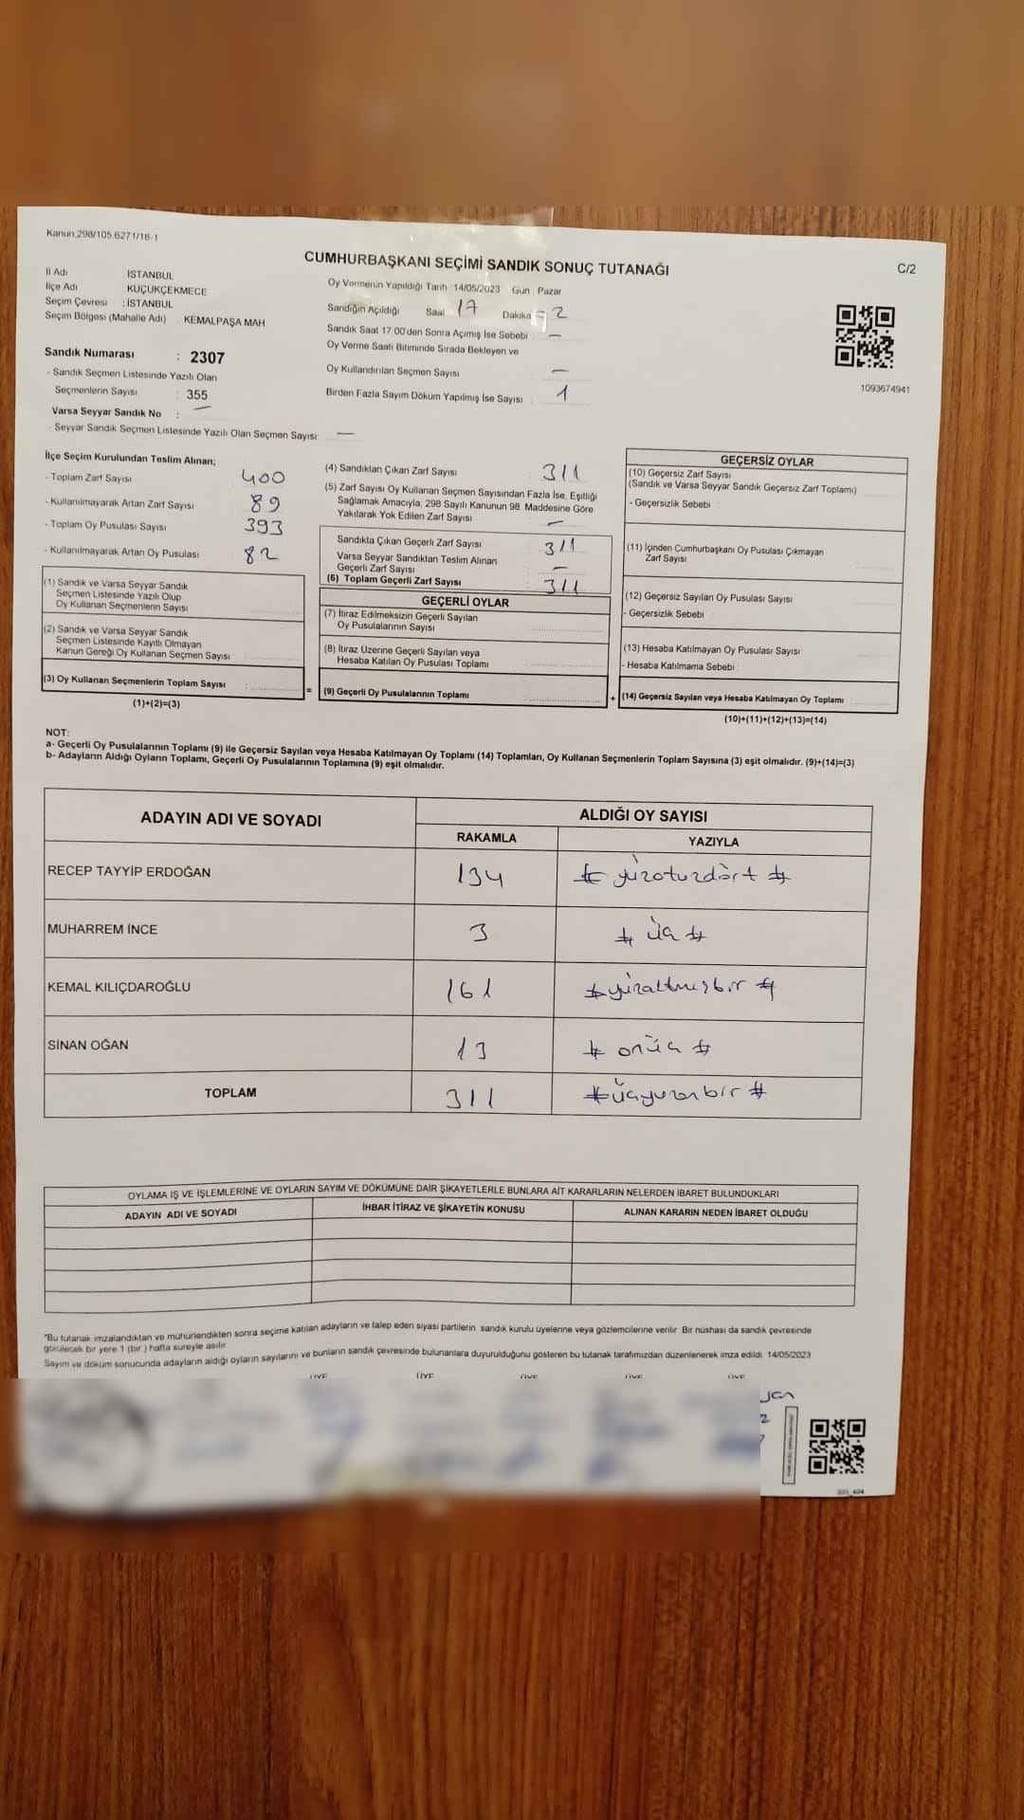 Kanun 298/105.6271/18-1
CUMHURBAŞKANI SEÇİMİ SANDIK SONUÇ TUTANAĞI
C/2
İl Adı İSTANBUL
İlçe Adı KÜÇÜKÇEKMECE
Seçim Çevresi : İSTANBUL
Seçim Bölgesi (Mahalle Adı) KEMALPAŞA MAH
Oy Vermenin Yapıldığı Tarih 14/05/2023 Gün Pazar
Sandığın Açıldığı Saat 17 Dakika - 2
Sandık Saat 17 00'den Sonra Açımış İse Sebebi —
Oy Verme Saati Bitiminde Sırada Bekleyen ve
Oy Kullandırılan Seçmen Sayısı —
Birden Fazla Sayım Döküm Yapılmış İse Sayısı : 1
1093674941
Sandık Numarası : 2307
- Sandık Seçmen Listesinde Yazılı Olan
Seçmenlerin Sayısı : 355
Varsa Seyyar Sandık No : —
- Seyyar Sandık Seçmen Listesinde Yazılı Olan Seçmen Sayısı: —
İlçe Seçim Kurulundan Teslim Alınan;
- Toplam Zarf Sayısı 400
- Kullanılmayarak Artan Zarf Sayısı 89
- Toplam Oy Pusulası Sayısı 393
- Kullanılmayarak Artan Oy Pusulası 82
(1) Sandık ve Varsa Seyyar Sandık
Seçmen Listesinde Yazılı Olup
Oy Kullanan Seçmenlerin Sayısı
(2) Sandık ve Varsa Seyyar Sandık
Seçmen Listesinde Kayıtlı Olmayan
Kanun Gereği Oy Kullanan Seçmen Sayısı
(3) Oy Kullanan Seçmenlerin Toplam Sayısı
(1)+(2)=(3)
(4) Sandıktan Çıkan Zarf Sayısı 311
(5) Zarf Sayısı Oy Kullanan Seçmen Sayısından Fazla İse, Eşitliği
Sağlamak Amacıyla, 298 Sayılı Kanunun 98. Maddesine Göre
Yakılarak Yok Edilen Zarf Sayısı —
Sandıkta Çıkan Geçerli Zarf Sayısı 311
Varsa Seyyar Sandıktan Teslim Alınan
Geçerli Zarf Sayısı —
(6) Toplam Geçerli Zarf Sayısı 311
GEÇERLİ OYLAR
(7) İtiraz Edilmeksizin Geçerli Sayılan
Oy Pusulalarının Sayısı
(8) İtiraz Üzerine Geçerli Sayılan veya
Hesaba Katılan Oy Pusulası Toplamı
= (9) Geçerli Oy Pusulalarının Toplamı
GEÇERSİZ OYLAR
(10) Geçersiz Zarf Sayısı
(Sandık ve Varsa Seyyar Sandık Geçersiz Zarf Toplamı)
- Geçersizlik Sebebi
(11) İçinden Cumhurbaşkanı Oy Pusulası Çıkmayan
Zarf Sayısı
(12) Geçersiz Sayılan Oy Pusulası Sayısı
- Geçersizlik Sebebi
(13) Hesaba Katılmayan Oy Pusulası Sayısı
- Hesaba Katılmama Sebebi
+ (14) Geçersiz Sayılan veya Hesaba Katılmayan Oy Toplamı
(10)+(11)+(12)+(13)=(14)
NOT:
a- Geçerli Oy Pusulalarının Toplamı (9) ile Geçersiz Sayılan veya Hesaba Katılmayan Oy Toplamı (14) Toplamları, Oy Kullanan Seçmenlerin Toplam Sayısına (3) eşit olmalıdır. (9)+(14)=(3)
b- Adayların Aldığı Oyların Toplamı, Geçerli Oy Pusulalarının Toplamına (9) eşit olmalıdır.
ADAYIN ADI VE SOYADI
ALDIĞI OY SAYISI
RAKAMLA YAZIYLA
RECEP TAYYİP ERDOĞAN 134 # yüzotuzdört #
MUHARREM İNCE 3 # üç #
KEMAL KILIÇDAROĞLU 161 # yüzaltmışbir #
SİNAN OĞAN 13 # onüç #
TOPLAM 311 # üçyüzonbir #
OYLAMA İŞ VE İŞLEMLERİNE VE OYLARIN SAYIM VE DÖKÜMÜNE DAİR ŞİKAYETLERLE BUNLARA AİT KARARLARIN NELERDEN İBARET BULUNDUKLARI
ADAYIN ADI VE SOYADI İHBAR İTİRAZ VE ŞİKAYETİN KONUSU ALINAN KARARIN NEDEN İBARET OLDUĞU
"Bu tutanak imzalandıktan ve mühürlendikten sonra seçime katılan adayların ve talep eden siyasi partilerin sandık kurulu üyelerine veya gözlemcilerine verilir Bir nüshası da sandık çevresinde
görülecek bir yere 1 (bir ) hafta süreyle asılır
Sayım ve döküm sonucunda adayların aldığı oyların sayılarını ve bunların sandık çevresinde bulunanlara duyurulduğunu gösteren bu tutanak tarafımızdan düzenlenerek imza edildi. 14/05/2023
ÜYE ÜYE ÜYE ÜYE ÜYE